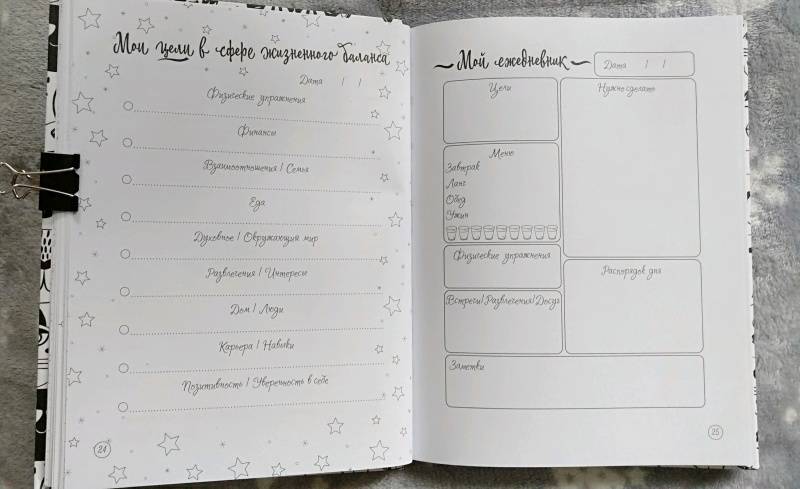 Мои цели в сфере жизненного баланса
Дата / /
Физические упражнения
Финансы
Взаимоотношения / Семья
Еда
Духовное / Окружающий мир
Развлечения / Интересы
Дом / Люди
Карьера / Навыки
Позитивность / Уверенность в себе
24
Мой ежедневник
Дата / /
Цели
Нужно сделать
Меню
Завтрак
Ланч
Обед
Ужин
Физические упражнения
Распорядок дня
Встречи/Развлечения/Досуг
Заметки
25